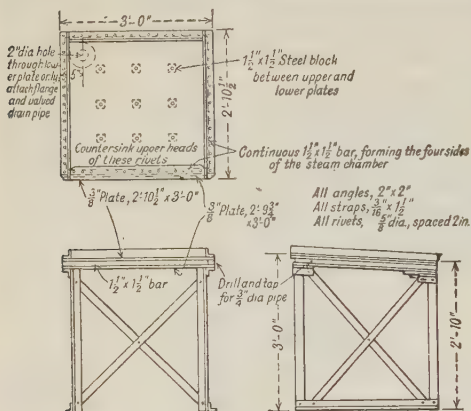 3'-0"
2" dia hole
through low-
er plate only,
attach flange
and valved
drain pipe
5"
1½" x 1½" Steel block
between upper and
lower plates
2'-10½"
Countersink upper heads
of these rivets
Continuous 1½" x 1½" bar, forming the four sides
of the steam chamber
⅜" Plate, 2'-10½" x 3'-0"
⅜" Plate, 2'-9¾"
x 3'-0"
All angles, 2" x 2"
All straps, 3/16" x 1½"
All rivets, ⅝" dia., spaced 2in.
1½" x 1½" bar
Drill and tap
for ¾" dia pipe
3'-0"
2'-10"